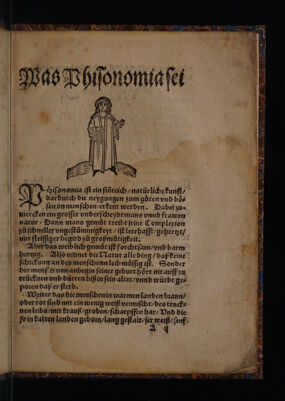 Was Phisonomia sei
PHisonomia ist ein sinreich/natürliche kunst/
dardurch die neygungen zum güten vnd bö-
sen im menschen/erkent werden. Dabei zu-
mercken ein grosser vnderscheydt mans vnnd frawen
natur/Dann mans gemüt treibt seine Complexion
zu schneller vngestümmigkeyt/ist leerhafft/gehertzt/
mit fleissiger begird zu großmütigkeit.
Aber das weiblich gemüt ist forchtsam/vnd barm
hertzig. Also ordnet die Natur alle ding/daß keine
schickung an des menschen leib müssig ist. Sonder
der mensch von anbegin seiner geburt hört nit auff zu
trücknen vnd dürren biß in sein alter/vnnd würdt ge-
poren daß er sterb.
Weiter das die menschen in warmen landen braun/
oder rot sind mit ein wenig weiß vermischt/des trucke-
nen leibs/mit krauß/groben/ har/Vnd die
so in kalten landen geborn/lang gestalt/ser weiß/senf
A ij